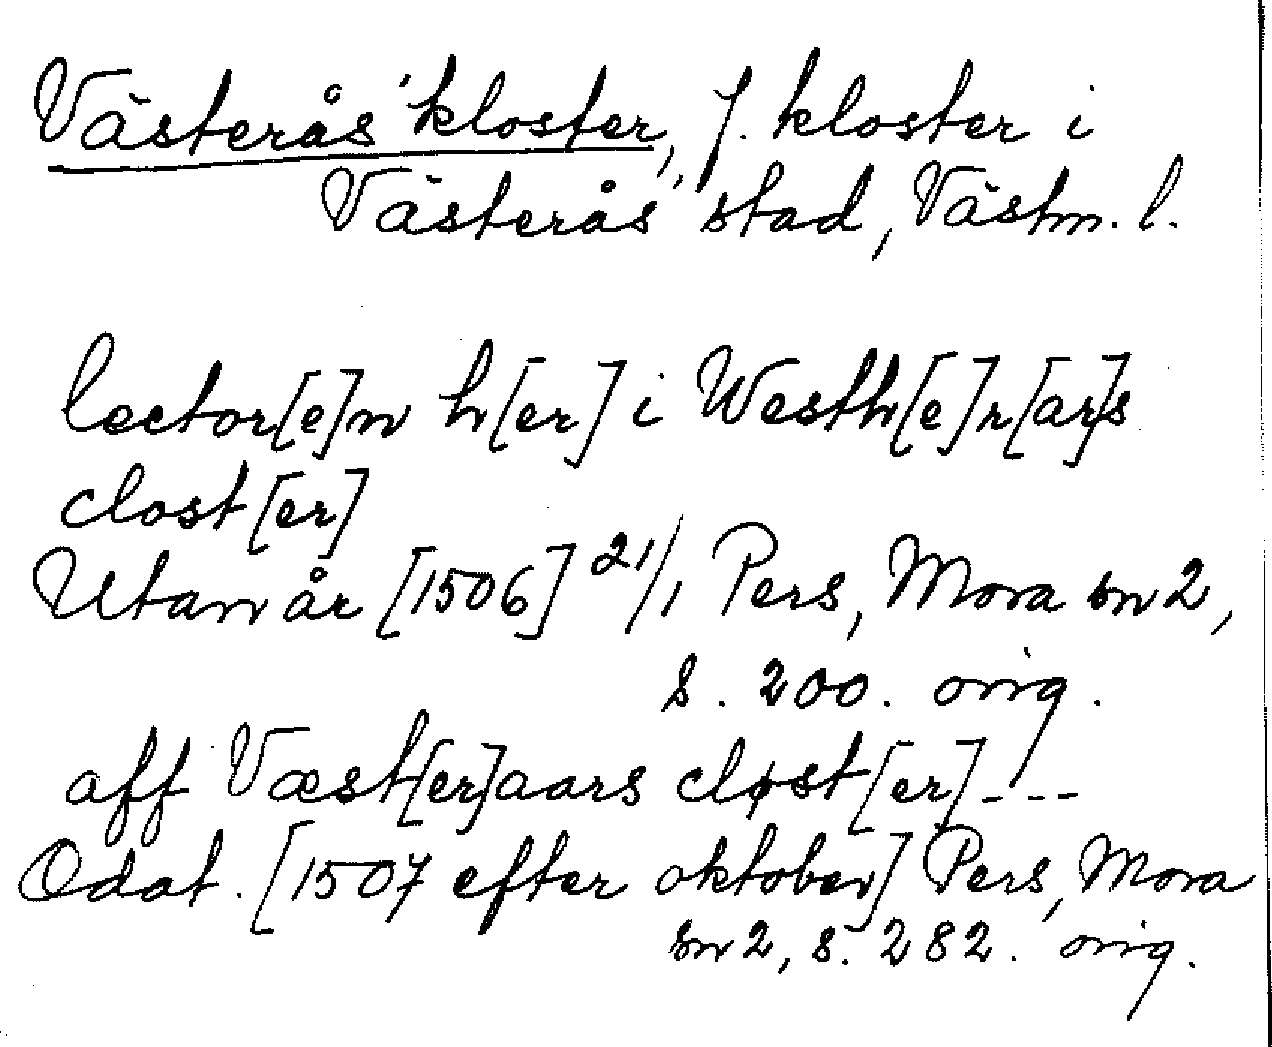 Västerås kloster, f. kloster i
Västerås stad, Västm. l.
lector[e]n h[er] i Westh[e]r[ar]s
clost[er]
Utan år [1506] 21/1 Pers, Mora sn 2,
s. 200. orig.
aff Væst[er]aars cløst[er]---
Odat. [1507 efter oktober] Pers, Mora
sn 2, s. 282. orig.